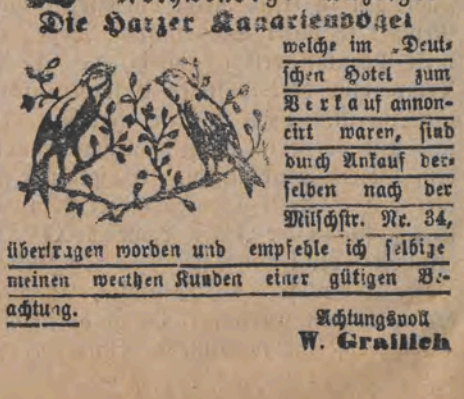 Die Harzer Kanarienvögel
welche im „Deut-
schen Hotel zum
Verkauf annon-
cirt waren, sind
durch Ankauf der-
selben nach der
Milschstr. Nr. 34,
übertragen worden und empfehle ich selbige
meinen werthen Kunden einer gütigen Be-
achtung.
Achtungsvoll
W. Grailich